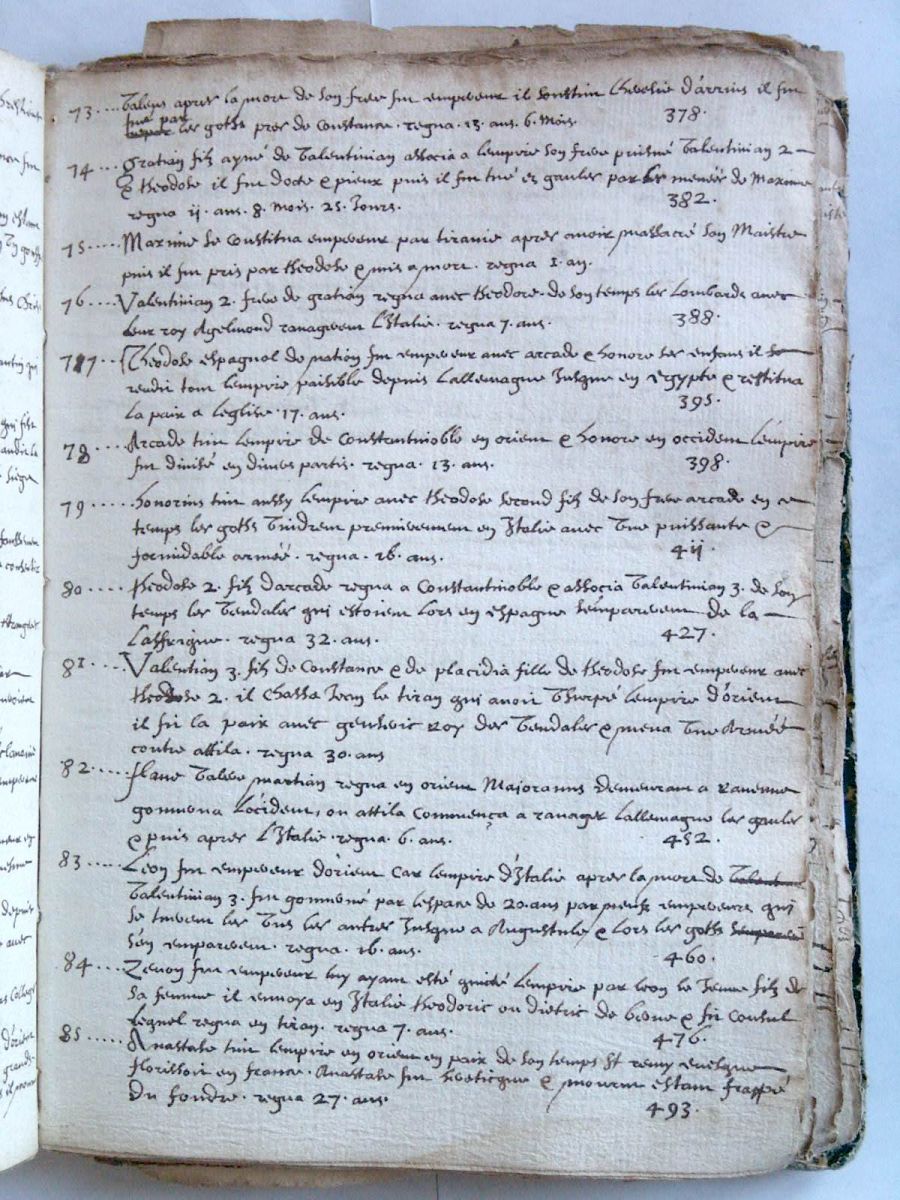 73.... Valens apres la mort de son frere fut empereur il soustint lheresie d'arrius il fut
tué par les goths pres de Constance. regna. 13. ans. 6. Mois. 378.
74.... Gratian filz aysné de Valentinian associa a lempire son frere puisné Valentinian 2
& theodose il fut docte & pieux puis il fut tué ez gaules par les menées de Maxime
regna ii. ans. 8. Mois. 25. Jours. 382.
75.... Maxime se constitua empereur par tiranie apres avoir massacré son Maistre
puis il fut pris par theodose & mis a mort. regna 1. an.
76.... Valentinian 2. frere de gratian regna avec theodore. de son temps les Lombards avec
leur roy Agelmond ravagerent L'Italie. regna 7. ans. 388.
77.. Theodose espagnol de nation fut empereur avec arcade & honore ses enfans il
rendit tout lempire paisible depuis Lallemagne Jusque en egypte & restitua
la paix a leglise. 17. ans. 395.
78.... Arcade tint lempire de Constantinoble en orient & honore en occident lempire
fut divisé en partis. regna. 13. ans. 398.
79.... honorius tint aussy lempire avec theodose second filz de son frere arcade en ce
temps les goths Vindrent premierement en Italie avec Une puissante &
formidable armée. regna. 16. ans. 4ii.
80.... theodose 2. filz d'arcade regna a Constantinoble & associa Valentinian 3. de son
temps les Vendales qui estoient Lors en espagne semparerent de la
Laffrique. regna 32. ans. 427.
81.... Valentian 3. filz de Constance & de placidia fille de theodose fut empereur avec
theodose 2. il chassa Jean le tiran qui avoit Vsurpé lempire d'orient
il fit la paix avec genseric Roy des Vendales & mena Une Armée
contre attila. regna 30. ans
82.... flave Valere martian regna en orient Majoranus demeurant a ravenne
gouverna L'ocident, ou attila commença a ravager Lallemagne les gaules
& puis apres L'Italie. regna. 6. ans. 452.
83..... Leon fut empereur d'orient car lempire d'Italie apres la mort de
Valentinian 3. fut gouverné par lespace de 20. ans par empereurs qui
se tuerent les Uns les autres Jusque a Augustule & Lors les goths
s'en emparerent. regna. 16. ans. 460.
84.... Zenon fut empereur luy ayant esté quitté Lempire par leon le Jeune filz de
sa femme il envoya en Italie theodoric ou dietric de berne & fit Consul
lequel regna en tiran. regna 7. ans. 476.
85.... Anastase tint lempire en orient en paix de son temps St remy evesque
florissoit en france. Anastase fut heretique & mourut estant frappé
du foudre. regna 27. ans. 493.